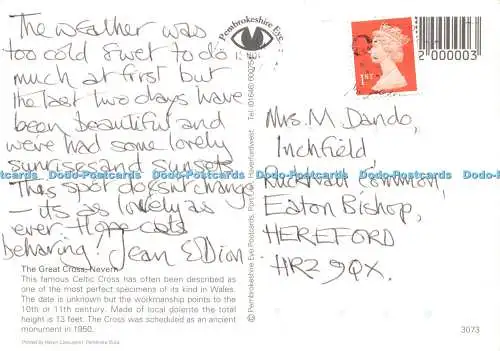 The weather was
too cold & wet to do
much at first but
the last two days have
been beautiful and
we've had some lovely
sunrises and sunsets.
This spot doesn't change
– its as lovely as
ever. Hope cats
behaving. Jean & Dion
The Great Cross, Nevern
This famous Celtic Cross has often been described as
one of the most perfect specimens of its kind in Wales.
The date is unknown but the workmanship points to the
10th or 11th century. Made of local dolerite the total
height is 13 feet. The Cross was scheduled as an ancient
monument in 1950.
Pembrokeshire Eye
© Pembrokeshire Eye Postcards,
1ST
2 000003
Mrs. M. Dando,
Inchfield,
Ruckhall Common,
Eaton Bishop,
HEREFORD
HR2 9QX.
3073
Dodo-Postcards Dodo-Postcards Dodo-Postcards Dodo-Postcards Dodo-Postcards